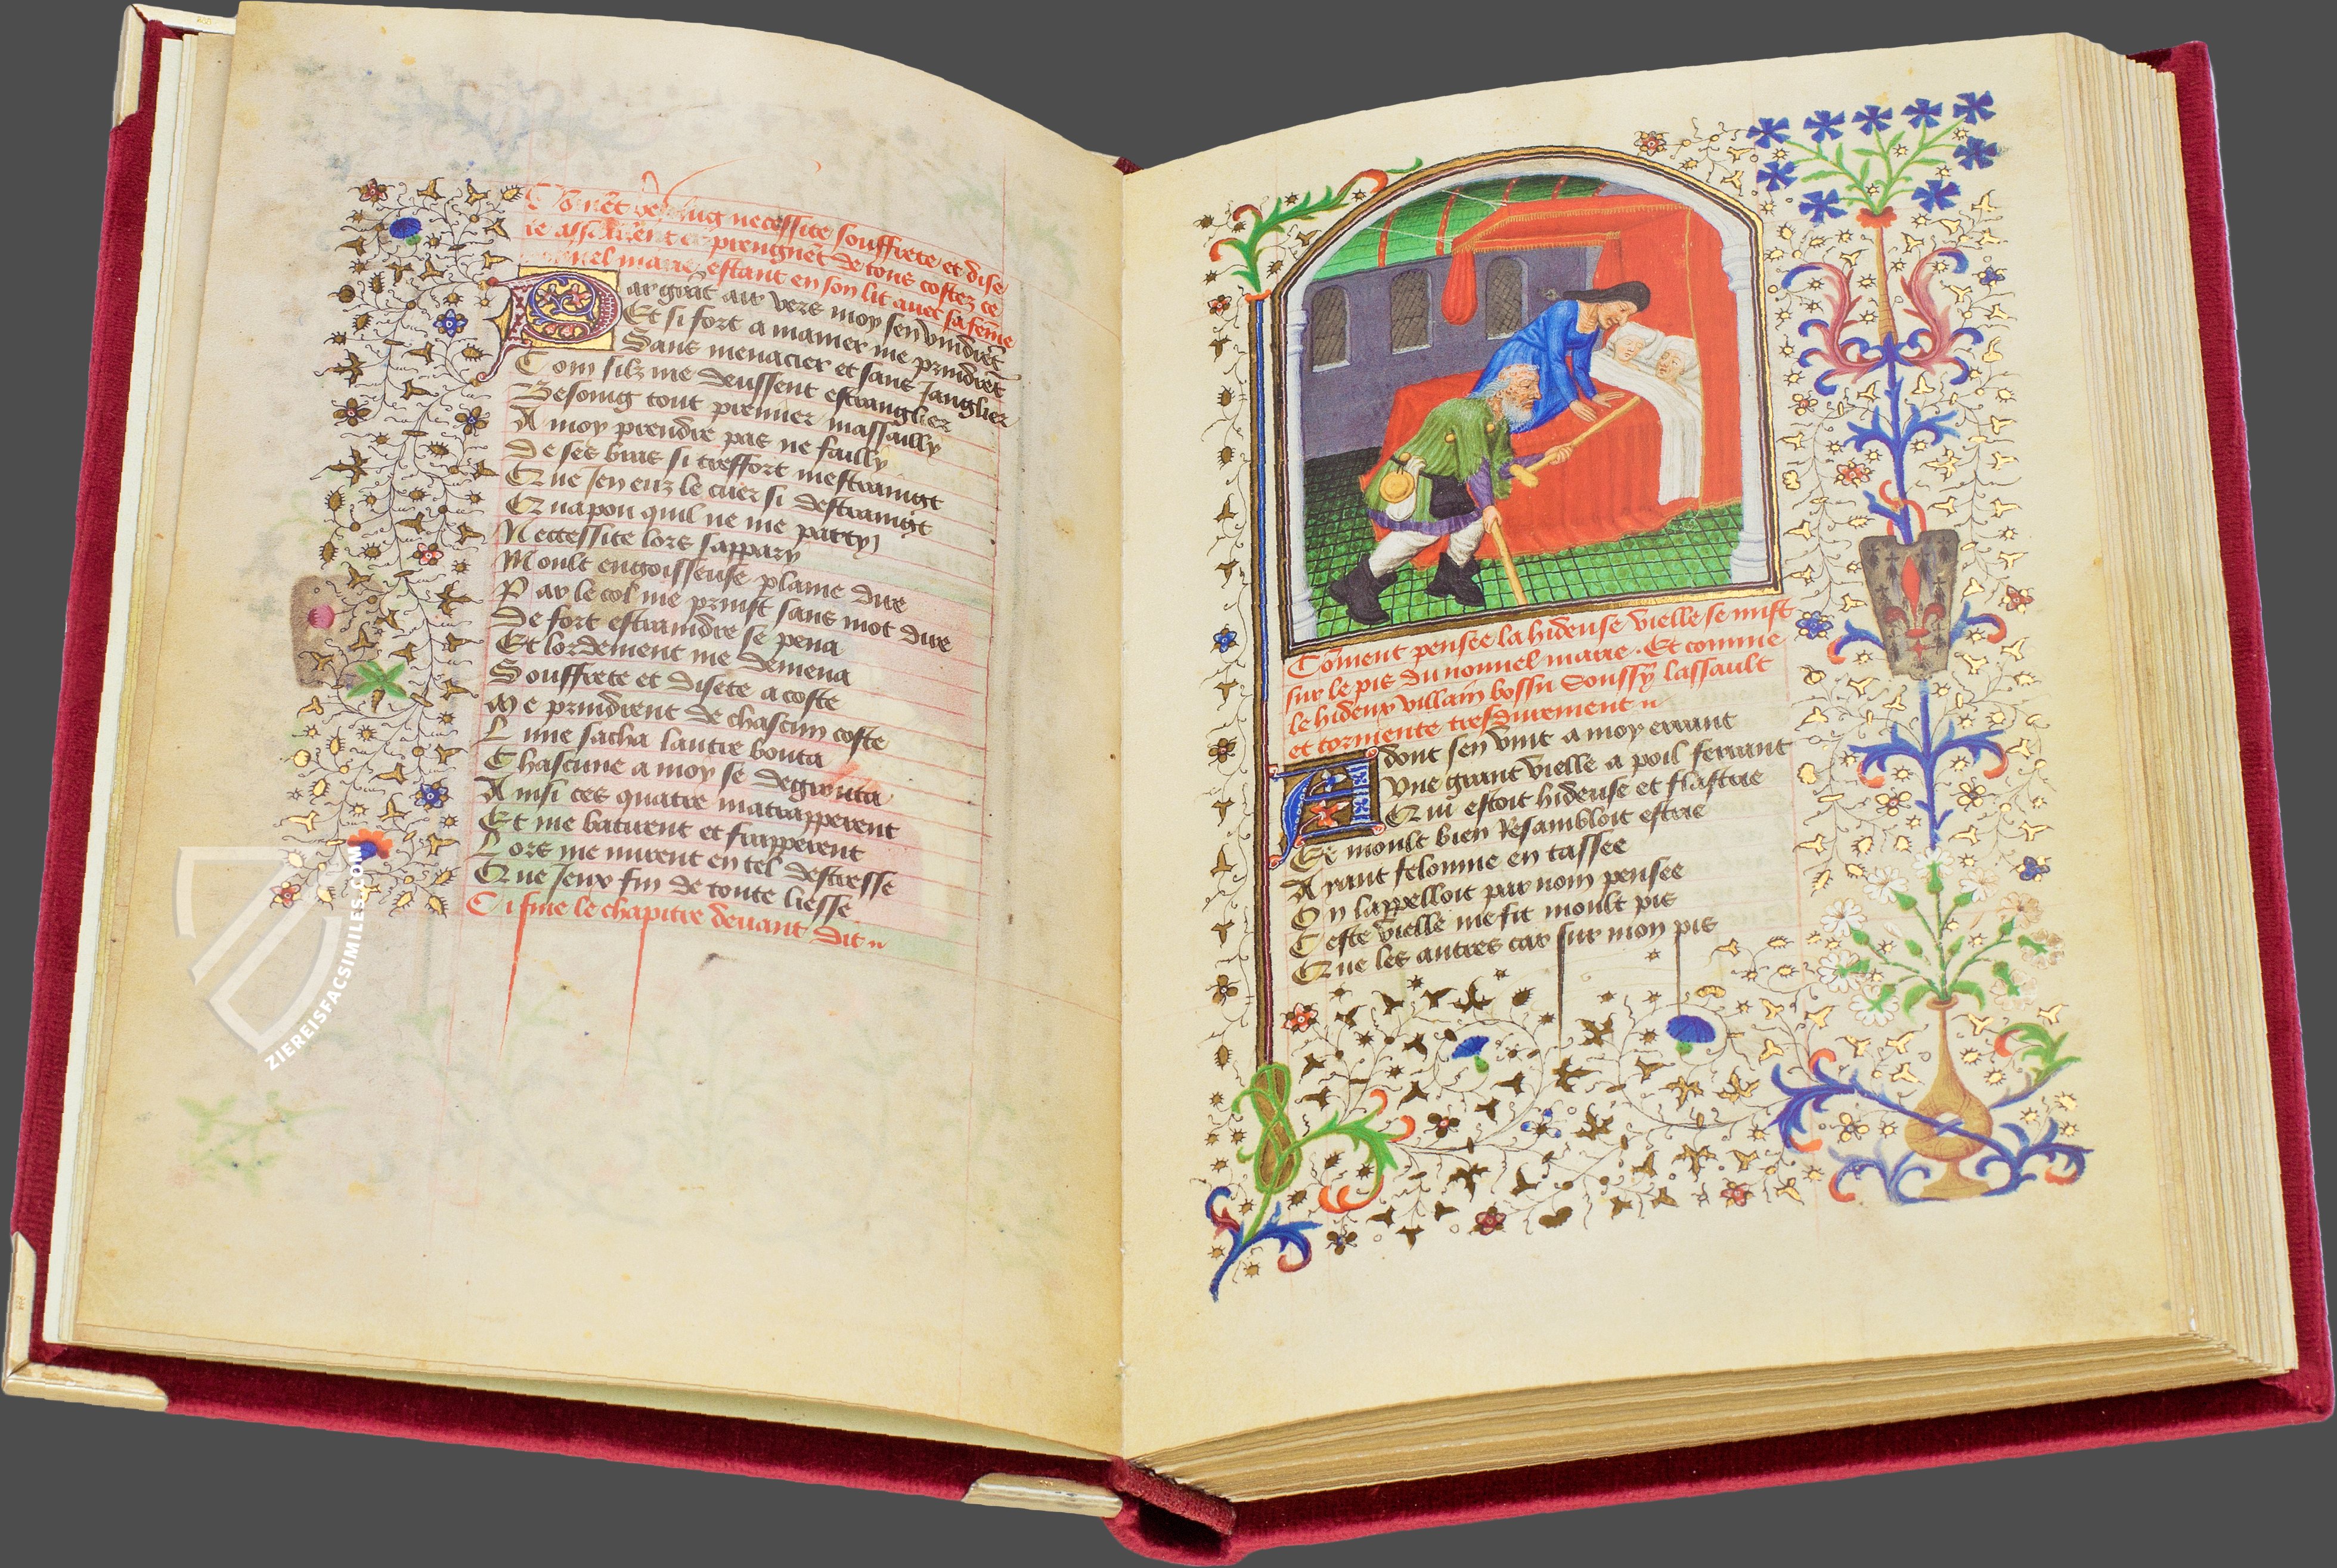 necessite souffrete et dise
te assaillent et prengnēt de tous costez ce
nouuel marie estant en son lit auec sa fēme
Par grāt air vers moy sen vindrēt
Et si fort a manier me prindrēt
Sans menacier et sans Janglier
Com silz me deussent estrangler
Besoing tout premier massailly
A moy prendre pas ne failly
De ses bras si tresfort mestraingt
Que Jen euz le cuer si destraingt
Qua pou quil ne me party
Neccessite lors sappary
Moult engoisseuse plaine dire
Par le col me prinst sans mot dire
De fort estraindre se pena
Et lordement me demena
Souffrete et disete a coste
Me prindrent de chascun coste
Lune sacha lautre bouta
Chascune a moy se degouta
Ainsi ces quatre matrapperent
Et me batirent et frapperent
Lors me mirent en tel destresse
Que Jeux fin de toute liesse
Ci fine le chapitre deuant dit
Cōment pensee la hideuse vielle se mist
sur le pis du nouuel marie. Et comme
le hideux villain bossu Soussy lassault
et tormente tresdurement
Adont sen vint a moy errant
Vne grant vielle a poil ferrant
Qui estoit hideuse et flastre
Et moult bien Resambloit estre
Ayant felonnie en tassee
On lappelloit par nom pensee
Ceste vielle me fit moult pis
Que les autres car sur mon pis
ZIEREISFACSIMILES.COM